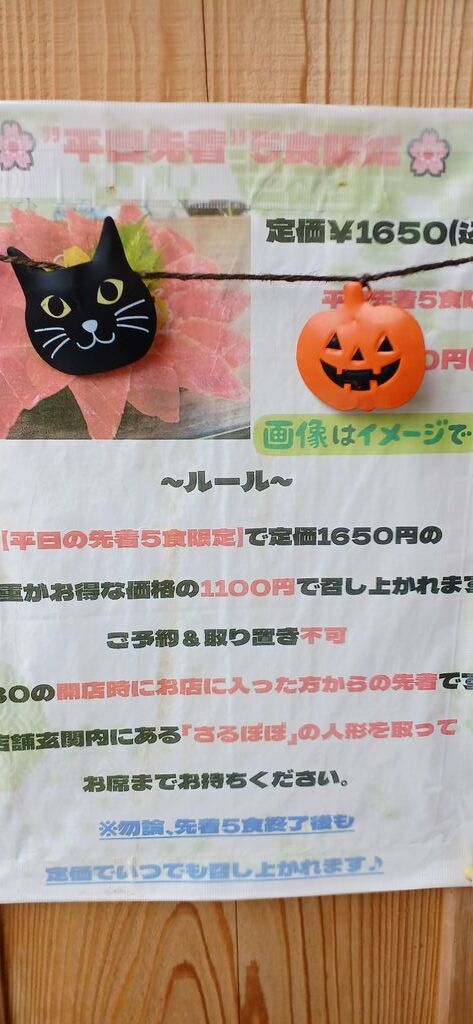 "平日先着"5食限定
定価¥1650(込
平 先着5食
0円(
画像はイメージで
~ルール~
【平日の先着5食限定】で定価1650円の
重がお得な価格の1100円で召し上がれます
ご予約&取り置き不可
30の開店時にお店に入った方からの先着です
店舗玄関内にある『さるぼぼ』の人形を取って
お席までお持ちください。
※勿論、先着5食終了後も
定価でいつでも召し上がれます♪